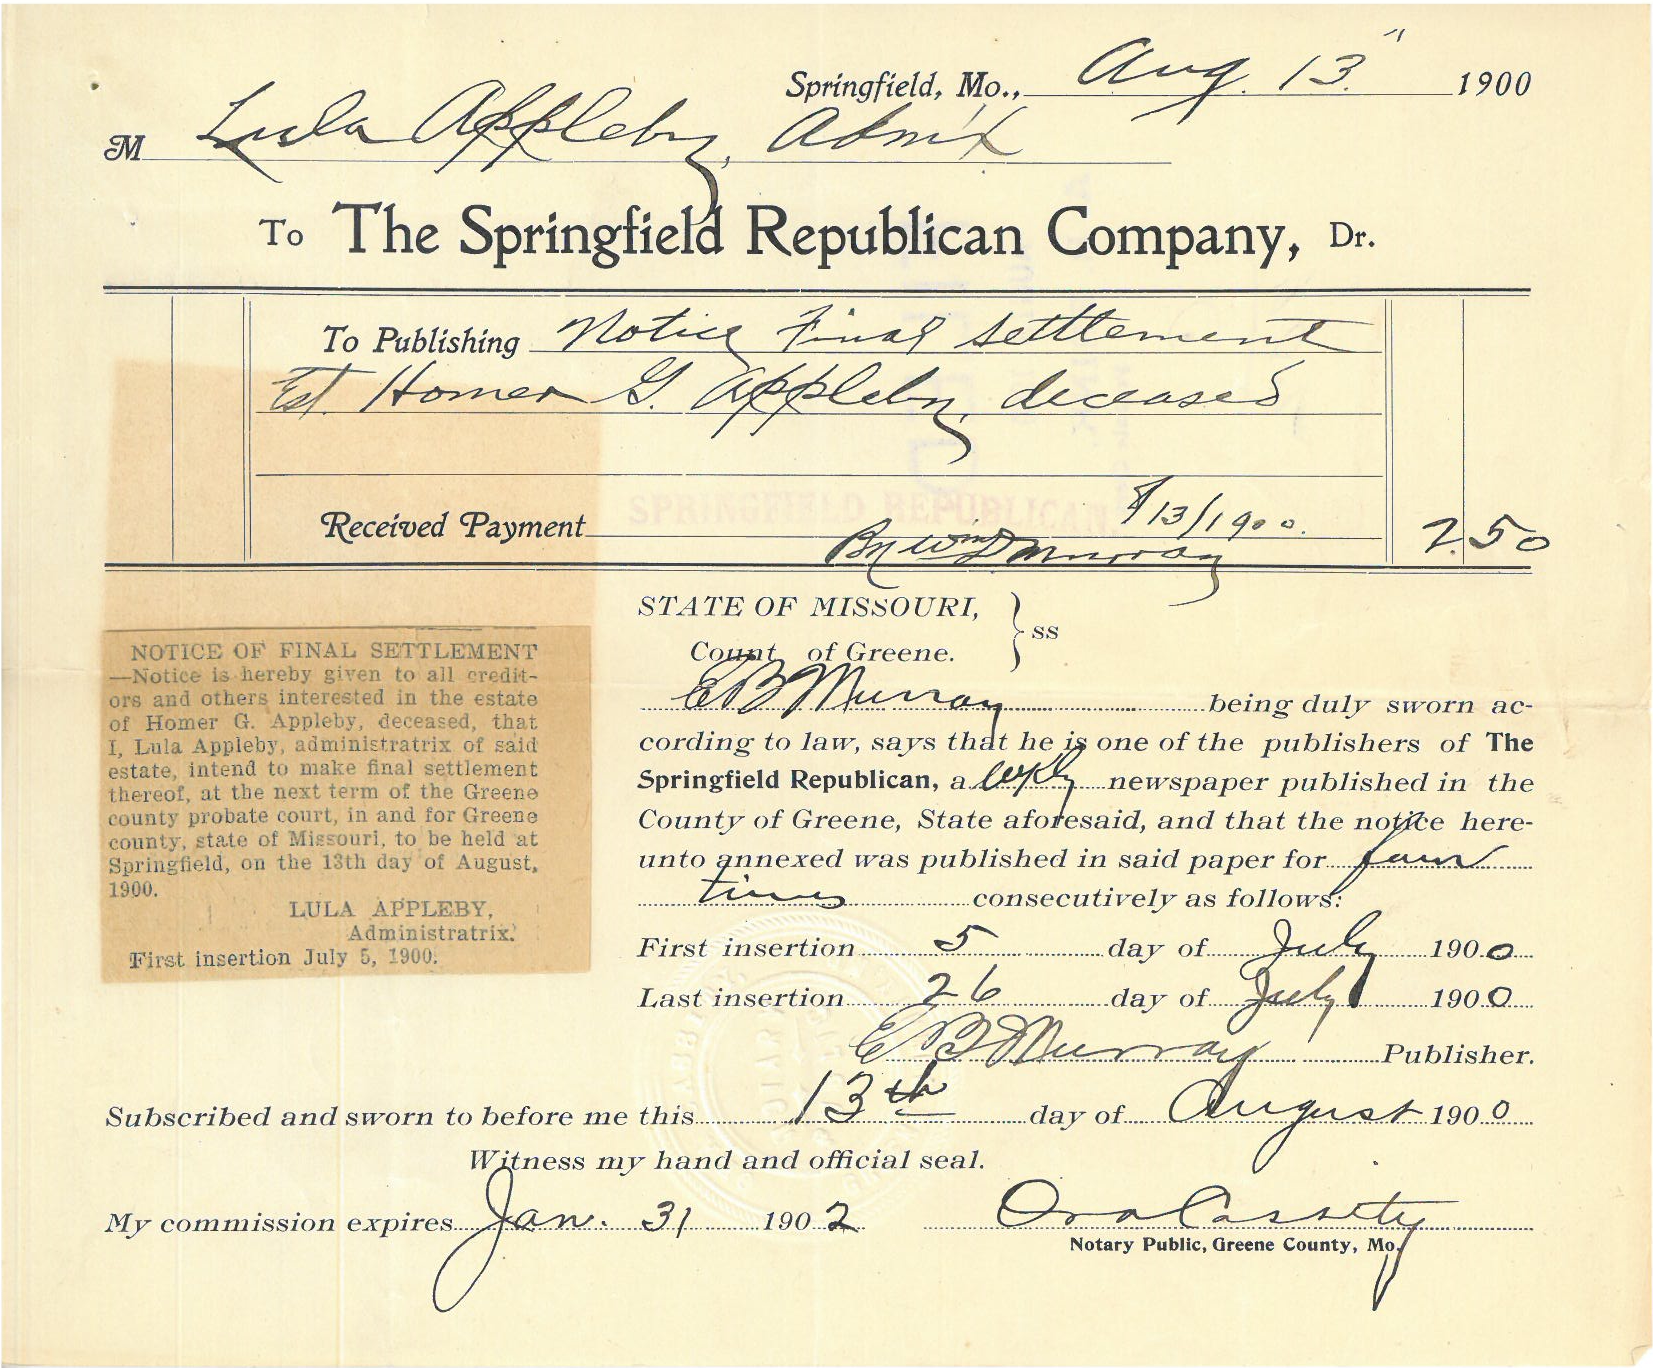 Springfield, Mo., Aug. 13" 1900
M Lula Appleby, Admx
To The Springfield Republican Company, Dr.
To Publishing Notice Final Settlement
Est. Homer G. Appleby, deceased
SPRINGFIELD REPUBLICAN
8/13/1900.
Received Payment By Wm D Murray 2.50
NOTICE OF FINAL SETTLEMENT
—Notice is hereby given to all credit-
ors and others interested in the estate
of Homer G. Appleby, deceased, that
I, Lula Appleby, administratrix of said
estate, intend to make final settlement
thereof, at the next term of the Greene
county probate court, in and for Greene
county, state of Missouri, to be held at
Springfield, on the 13th day of August,
1900.
LULA APPLEBY,
Administratrix.
First insertion July 5, 1900.
STATE OF MISSOURI, } ss
County of Greene.
E B Murray being duly sworn ac-
cording to law, says that he is one of the publishers of The
Springfield Republican, a wkly newspaper published in the
County of Greene, State aforesaid, and that the notice here-
unto annexed was published in said paper for four
times consecutively as follows:
First insertion 5 day of July 1900
Last insertion 26 day of July 1900
E B Murray Publisher.
Subscribed and sworn to before me this 13th day of August 1900
Witness my hand and official seal.
My commission expires Jan. 31 1902 Ora Cassety
Notary Public, Greene County, Mo.